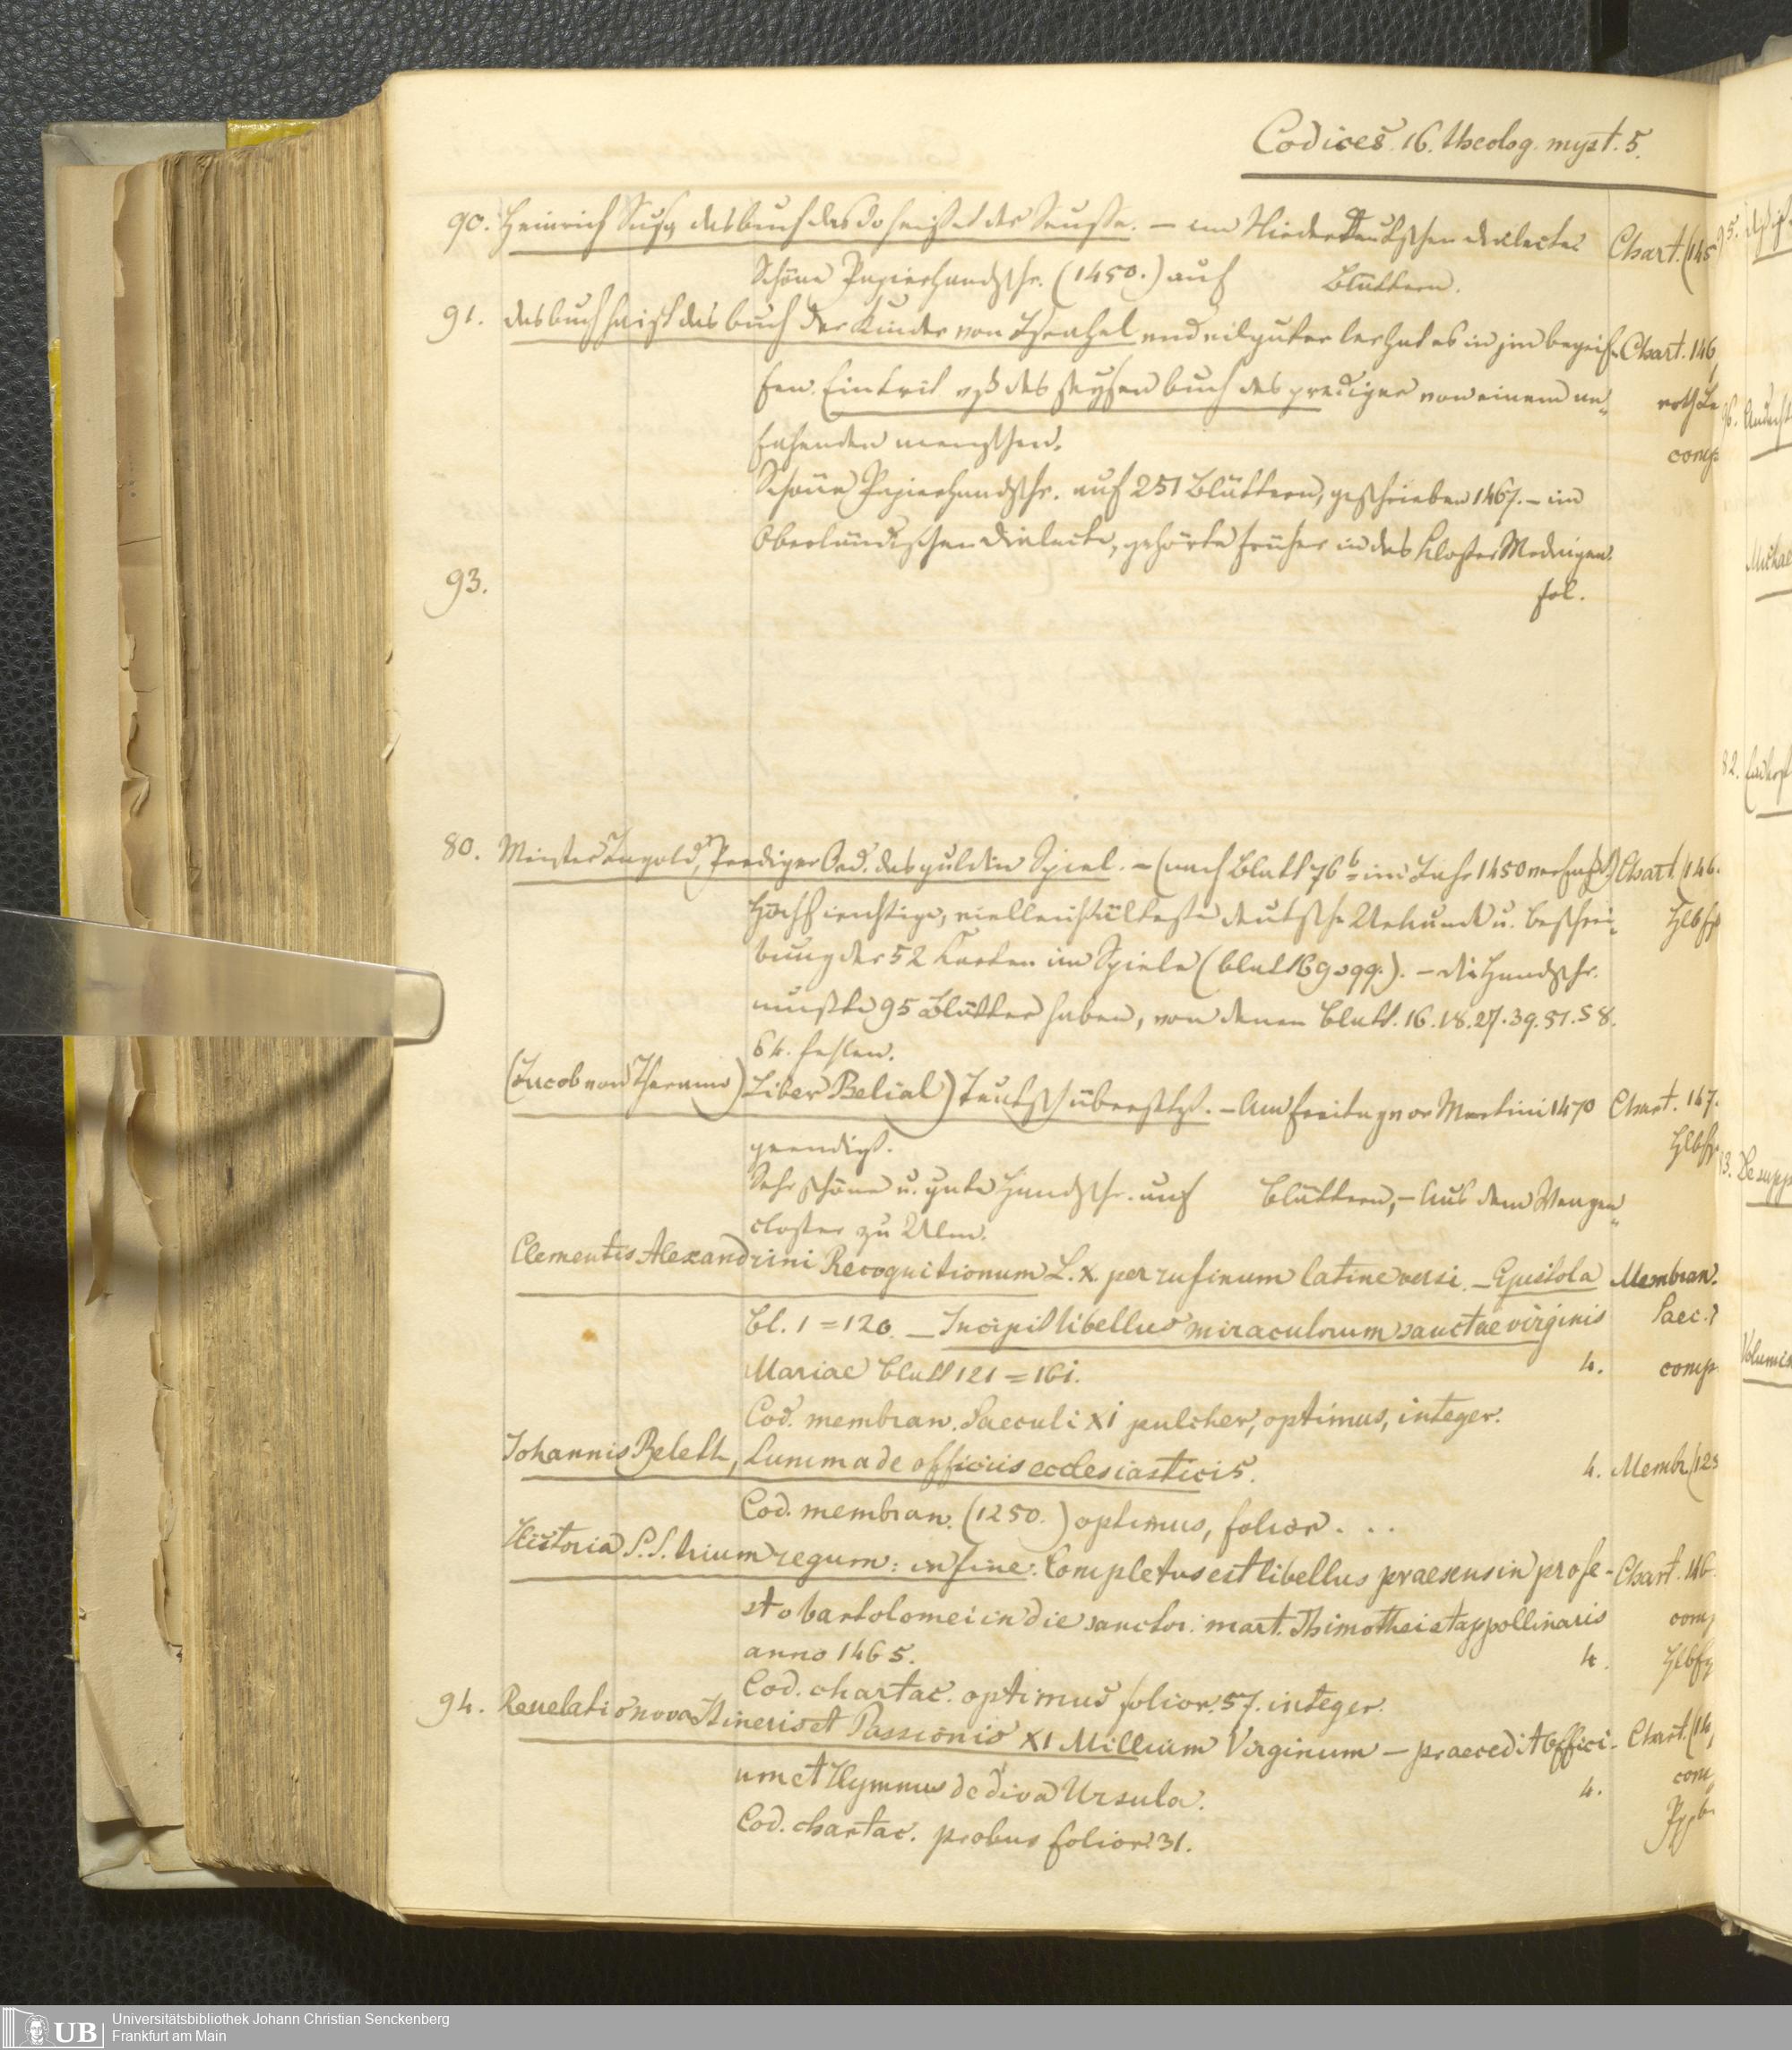 Codices. 16. theolog. myst. 5.
90. Heinrich Suso, das buch das do heisset der Seusse. — im Niederdeutschen dialecte Chart. (145
Schöne Papierhandschr. (1450.) auf Blättern.
91. das buch haist das buch der Kinder von Israhel und vil guter ler hat es in jm begrif= Chart. 146
fen. Einteil vss des seusen buch des prediger von einem an=
fahenden menschen. comp
Schöne Papierhandschr. auf 251 Blättern, geschrieben 1467. — im
Oberländischen Dialecte, gehörte früher in das Kloster Medingen.
93. fol.
80. Meister Ingold, Prediger Ord. das guldin Spiel. — (nach Blatt 76b im Jahr 1450 verfasst) Chart. (146.
Höchst wichtige, vielleicht älteste deutsche Urkunde u. Beschrei= Hlbfr
bung der 52 Karten im Spiele (Blatt 69=99.). — die Handschr.
mußte 95 Blätter haben, von denen Blatt. 16. 18. 27. 39. 57. 58.
64. fehlen.
(Jacob von Theramo) Liber Belial) Teutsch übersetzt. — Am Freitag vor Martini 1470 Chart. 147.
geendigt. Hlbfr
Sehr schöne u. gute Handschr. auf Blättern, — Aus dem Wengen=
closter zu Ulm.
Clementis Alexandrini Recognitionum L. X. per rufinum latine versi. — Epistola Membran.
Bl. 1=120. — Incipit libellus miraculorum sanctae virginis Saec.
Mariae Blatt 121=161. 4. comp
Cod. membran. Saeculi XI pulcher, optimus, integer.
Johannis Beleth, Summa de officiis ecclesiasticis. 4. Membr. (125
Cod. membran. (1250.) optimus, folior. . . .
Historia S.S. trium regum: in fine: Completus est libellus praesens in profe- Chart. 146
sto bartolomei in die sanctor. mart. Thimothei et appollinaris com
anno 1465. 4. Hlbfr
Cod. chartac. optimus folior. 57. integer.
94. Reuelatio nova Itineris et Passionis XI Millium Virginum — praecedit offici- Chart. (14
um et Hymnus de diva Ursula. 4. com
Cod. chartac. probus folior. 31.
Universitätsbibliothek Johann Christian Senckenberg
Frankfurt am Main
UB